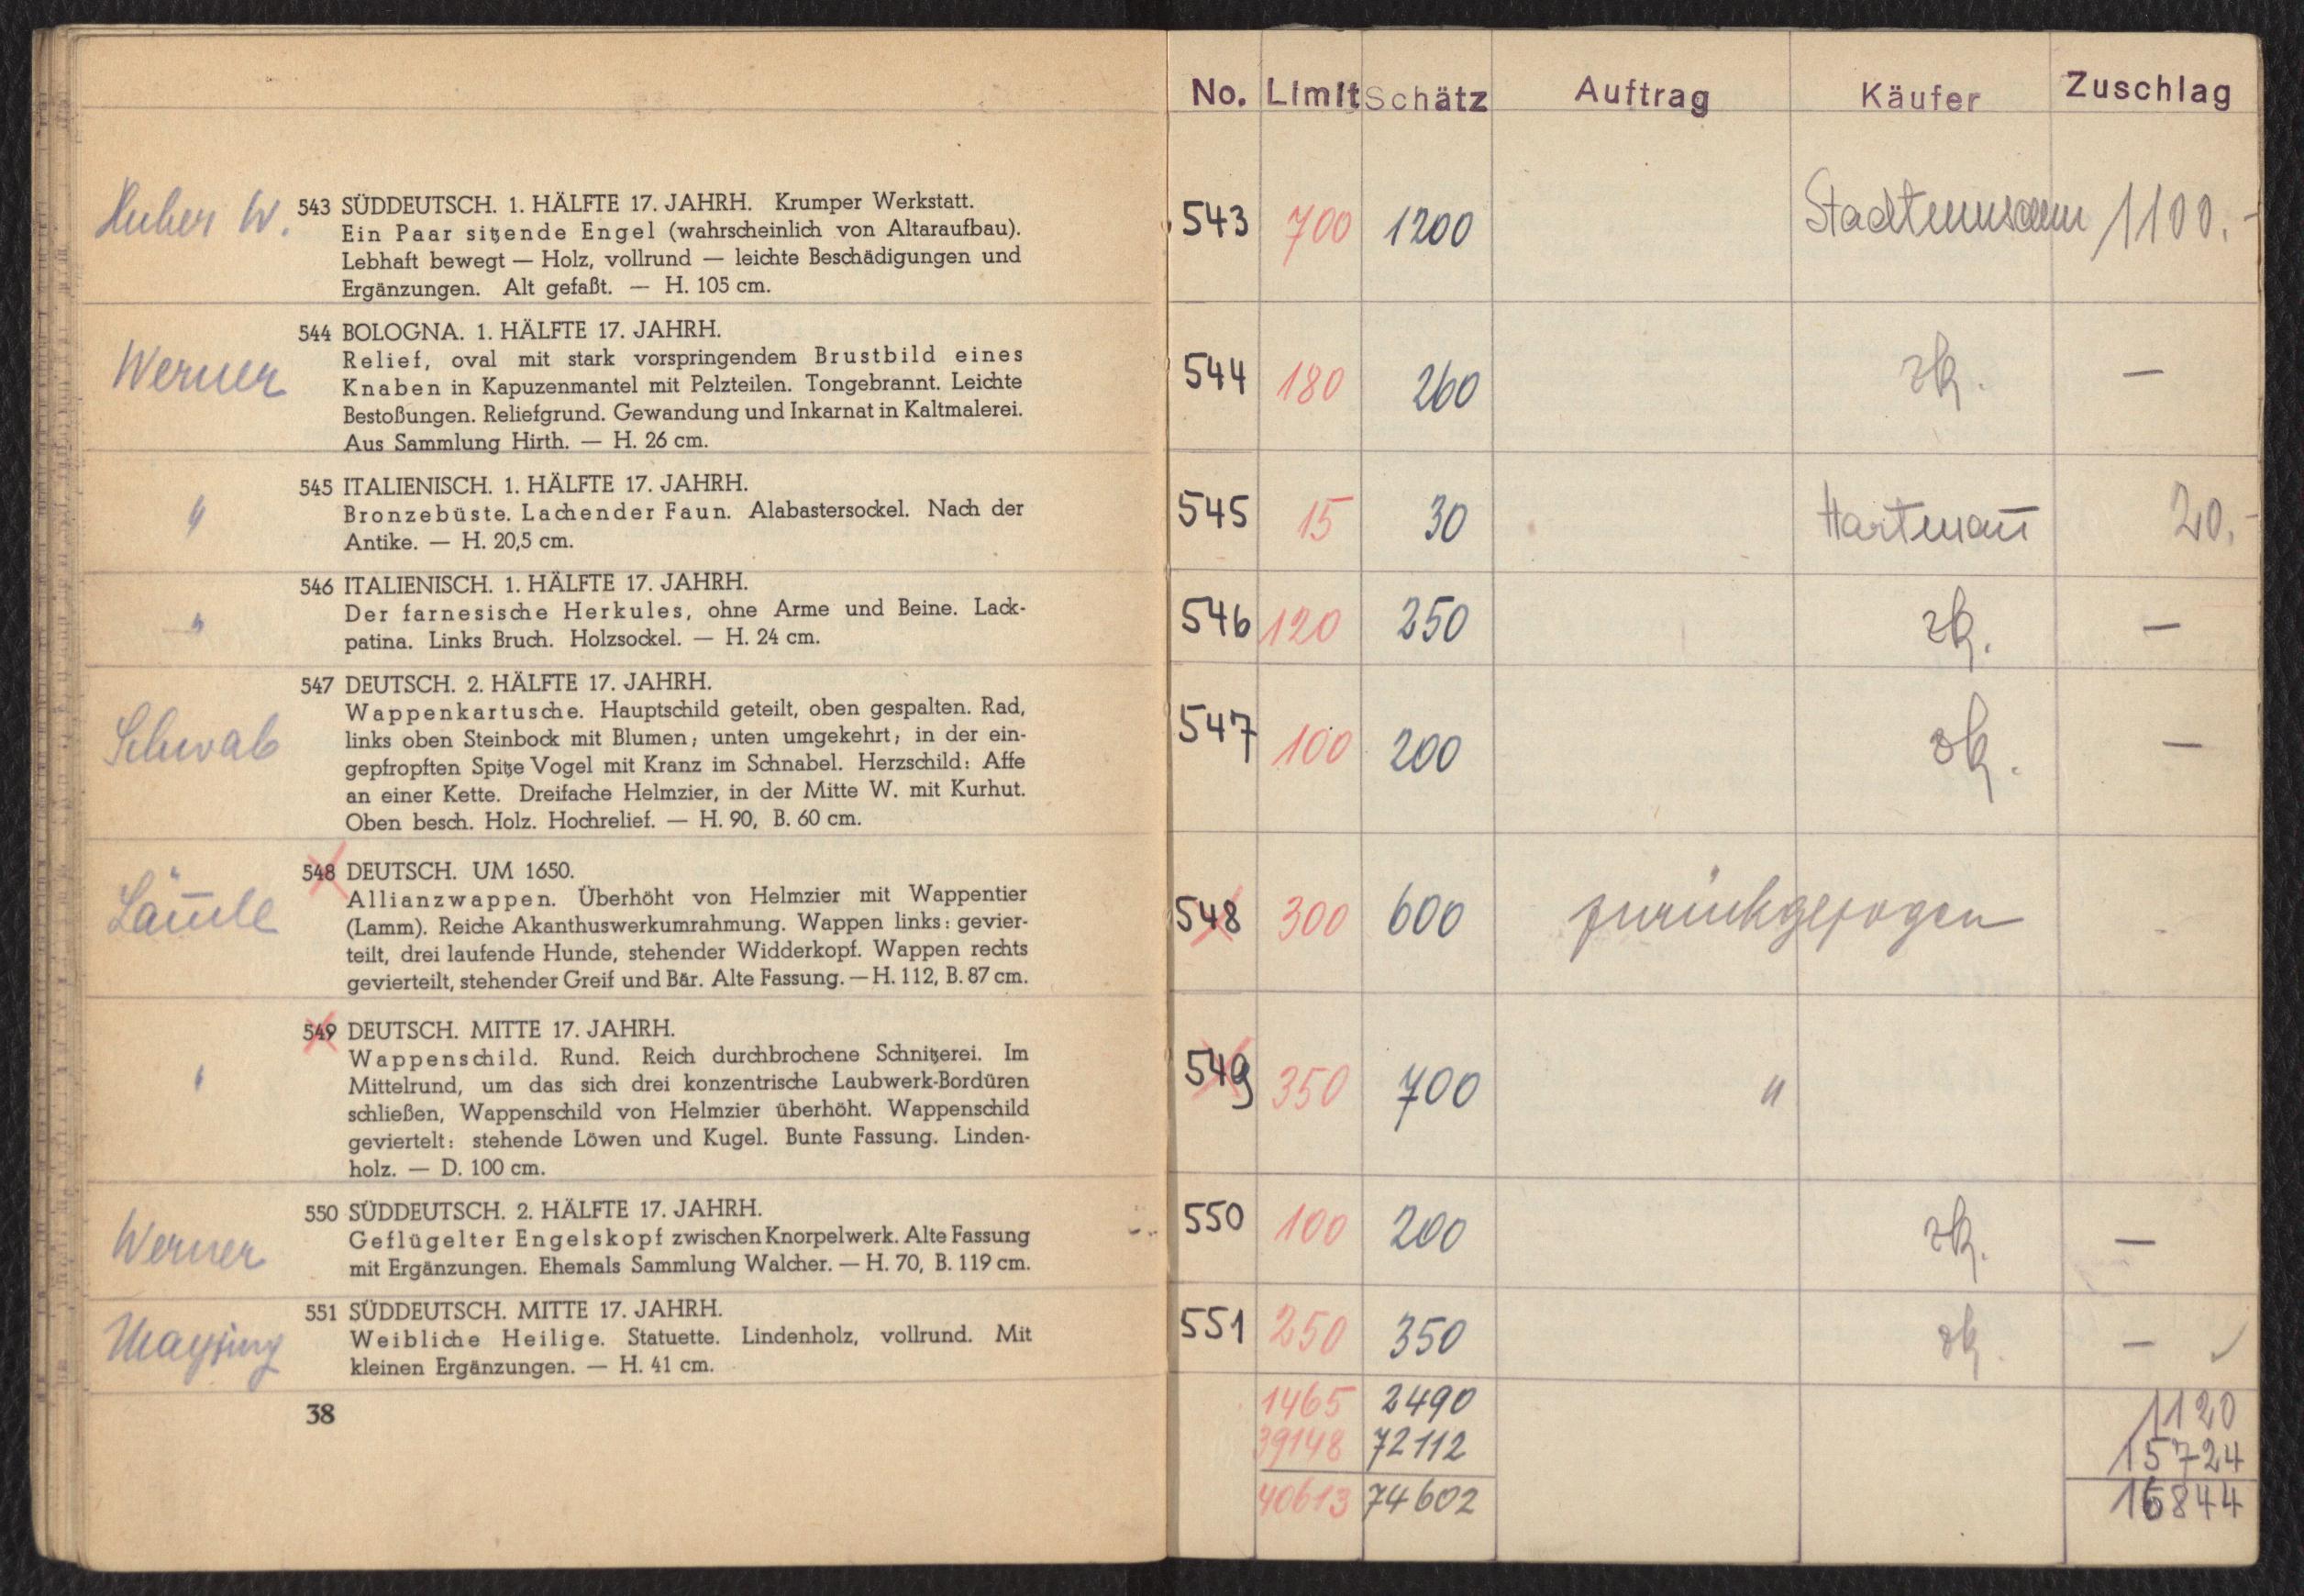 Huber W.
543 SÜDDEUTSCH. 1. HÄLFTE 17. JAHRH. Krumper Werkstatt.
Ein Paar sitzende Engel (wahrscheinlich von Altaraufbau).
Lebhaft bewegt — Holz, vollrund — leichte Beschädigungen und
Ergänzungen. Alt gefaßt. — H. 105 cm.
Werner
544 BOLOGNA. 1. HÄLFTE 17. JAHRH.
Relief, oval mit stark vorspringendem Brustbild eines
Knaben in Kapuzenmantel mit Pelzteilen. Tongebrannt. Leichte
Bestoßungen. Reliefgrund. Gewandung und Inkarnat in Kaltmalerei.
Aus Sammlung Hirth. — H. 26 cm.
"
545 ITALIENISCH. 1. HÄLFTE 17. JAHRH.
Bronzebüste. Lachender Faun. Alabastersockel. Nach der
Antike. — H. 20,5 cm.
"
546 ITALIENISCH. 1. HÄLFTE 17. JAHRH.
Der farnesische Herkules, ohne Arme und Beine. Lack-
patina. Links Bruch. Holzsockel. — H. 24 cm.
Schwab
547 DEUTSCH. 2. HÄLFTE 17. JAHRH.
Wappenkartusche. Hauptschild geteilt, oben gespalten. Rad,
links oben Steinbock mit Blumen; unten umgekehrt; in der ein-
gepfropften Spitze Vogel mit Kranz im Schnabel. Herzschild: Affe
an einer Kette. Dreifache Helmzier, in der Mitte W. mit Kurhut.
Oben besch. Holz. Hochrelief. — H. 90, B. 60 cm.
548 DEUTSCH. UM 1650.
Allianzwappen. Überhöht von Helmzier mit Wappentier
(Lamm). Reiche Akanthuswerkumrahmung. Wappen links: gevier-
teilt, drei laufende Hunde, stehender Widderkopf. Wappen rechts
gevierteilt, stehender Greif und Bär. Alte Fassung. — H. 112, B. 87 cm.
549 DEUTSCH. MITTE 17. JAHRH.
Wappenschild. Rund. Reich durchbrochene Schnitzerei. Im
Mittelrund, um das sich drei konzentrische Laubwerk-Bordüren
schließen, Wappenschild von Helmzier überhöht. Wappenschild
geviertelt: stehende Löwen und Kugel. Bunte Fassung. Linden-
holz. — D. 100 cm.
Werner
550 SÜDDEUTSCH. 2. HÄLFTE 17. JAHRH.
Geflügelter Engelskopf zwischen Knorpelwerk. Alte Fassung
mit Ergänzungen. Ehemals Sammlung Walcher. — H. 70, B. 119 cm.
551 SÜDDEUTSCH. MITTE 17. JAHRH.
Weibliche Heilige. Statuette. Lindenholz, vollrund. Mit
kleinen Ergänzungen. — H. 41 cm.
38
No. Limit Schätz Auftrag Käufer Zuschlag
543 700 1200 Stadtmuseum 1100.-
544 180 260 zk. —
545 15 30 Hartman̄ 20.-
546 120 250 zk. —
547 100 200 zk. —
548 300 600 zurückgezogen
549 350 700 "
550 100 200 zk. —
551 250 350 zk. — ✓
1465 2490 1120
39148 72112 15724
40613 74602 16844